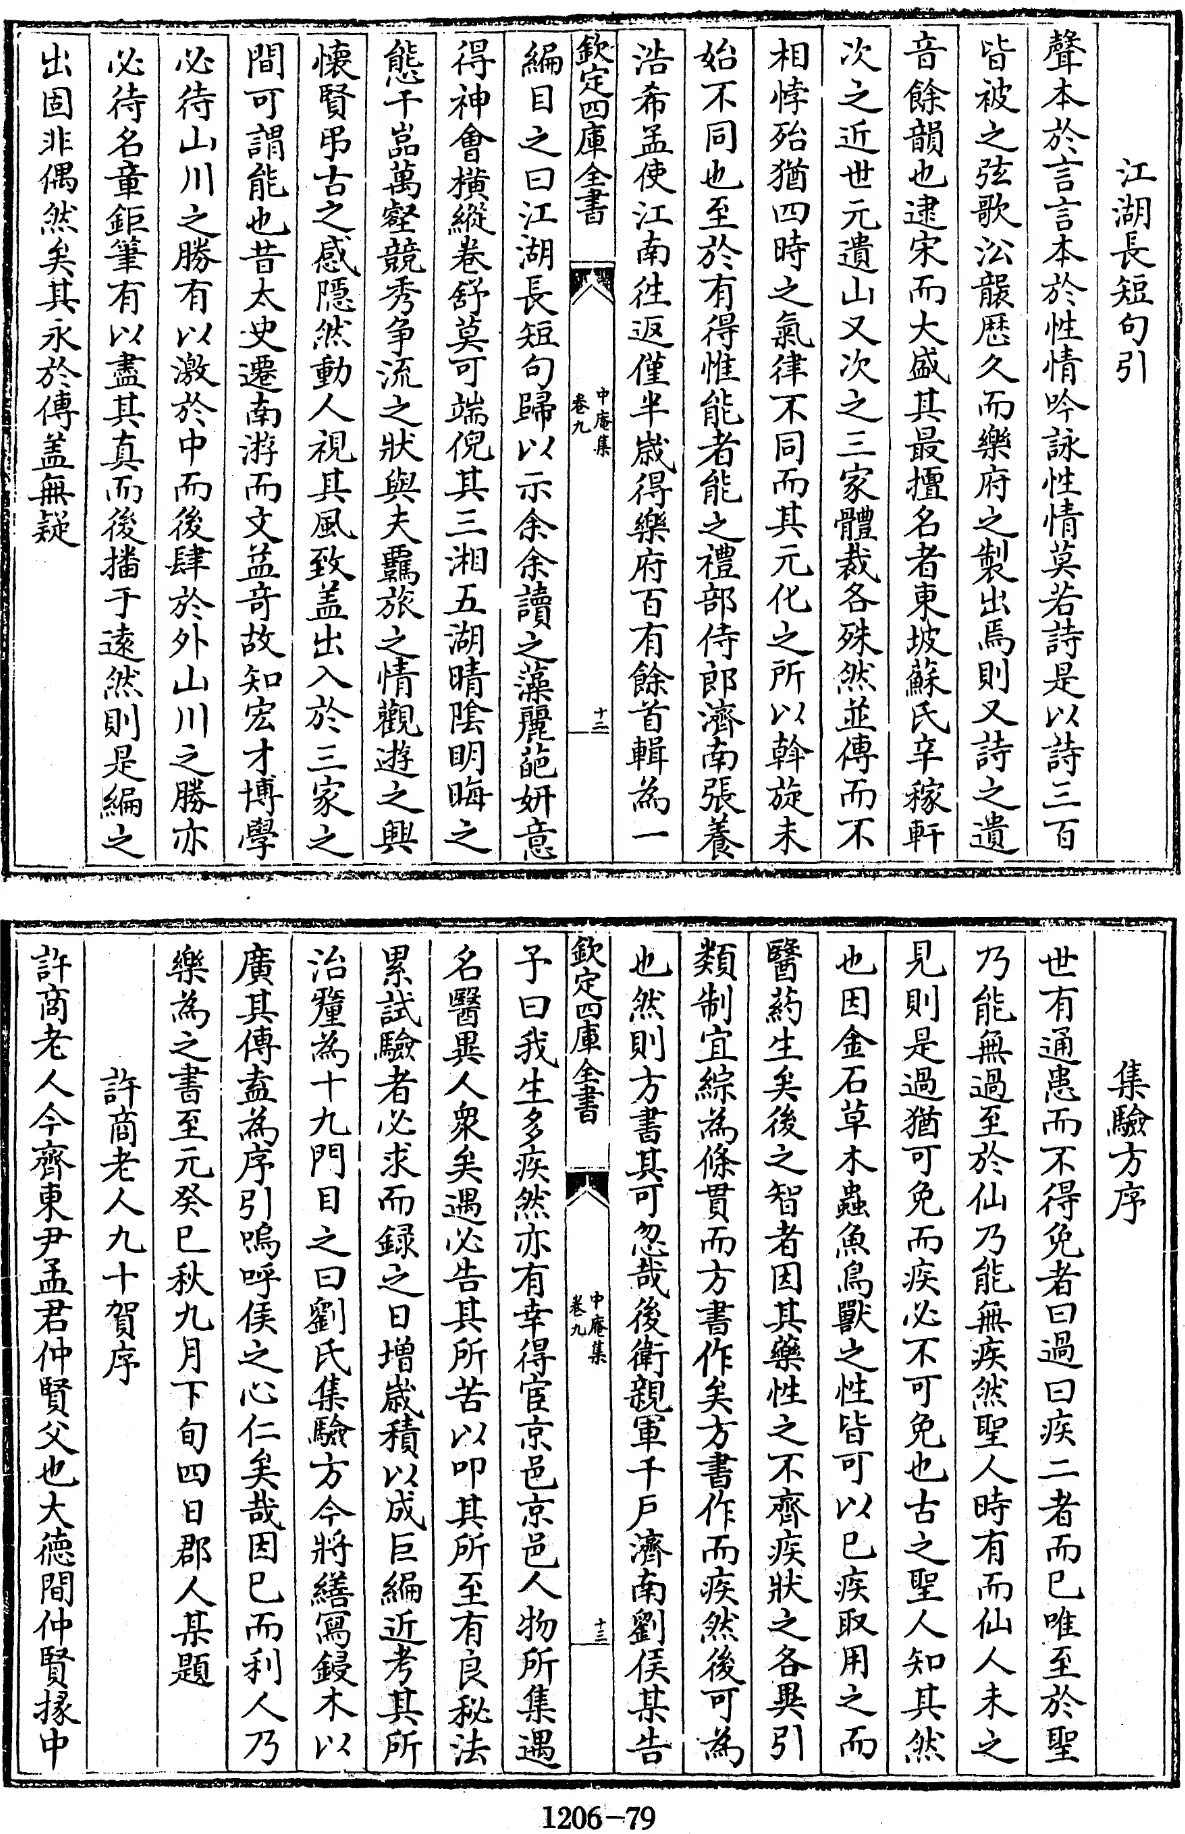 江湖長短句引
聲本於言言本於性情吟詠性情莫若詩是以詩三百
皆被之弦歌沿襲歴久而樂府之製出焉則又詩之遺
音餘韻也逮宋而大盛其最擅名者東坡蘇氏辛稼軒
次之近世元遺山又次之三家體裁各殊然並傳而不
相悖殆猶四時之氣律不同而其元化之所以斡旋未
始不同也至於有得惟能者能之禮部侍郎濟南張養
浩希孟使江南徃返僅半嵗得樂府百有餘首輯為一
欽定四庫全書
中庵集
卷九
十二
編目之曰江湖長短句歸以示余余讀之藻麗葩妍意
得神會横縱卷舒莫可端倪其三湘五湖晴陰明晦之
態千嵓萬壑競秀争流之狀與夫羈旅之情觀遊之興
懐賢弔古之感隠然動人視其風致盖出入於三家之
間可謂能也昔太史遷南游而文益竒故知宏才博學
必待山川之勝有以激於中而後肆於外山川之勝亦
必待名章鉅筆有以盡其真而後播于逺然則是編之
出固非偶然矣其永於傳盖無疑
集驗方序
世有通患而不得免者曰過曰疾二者而已唯至於聖
乃能無過至於仙乃能無疾然聖人時有而仙人未之
見則是過猶可免而疾必不可免也古之聖人知其然
也因金石草木蟲魚鳥獸之性皆可以已疾取用之而
醫藥生矣後之智者因其藥性之不齊疾狀之各異引
類制宜綜為條貫而方書作矣方書作而疾然後可為
也然則方書其可忽哉後衛親軍千戶濟南劉侯某告
欽定四庫全書
中庵集
卷九
十三
予曰我生多疾然亦有幸得宦京邑京邑人物所集遇
名醫異人衆矣遇必告其所苦以叩其所至有良秘法
累試驗者必求而録之日增嵗積以成巨編近考其所
治釐為十九門目之曰劉氏集驗方今將繕寫鋟木以
廣其傳盍為序引嗚呼侯之心仁矣哉因已而利人乃
樂為之書至元癸巳秋九月下旬四日郡人某題
許商老人九十賀序
許商老人今齊東尹孟君仲賢父也大徳間仲賢掾中
1206-79